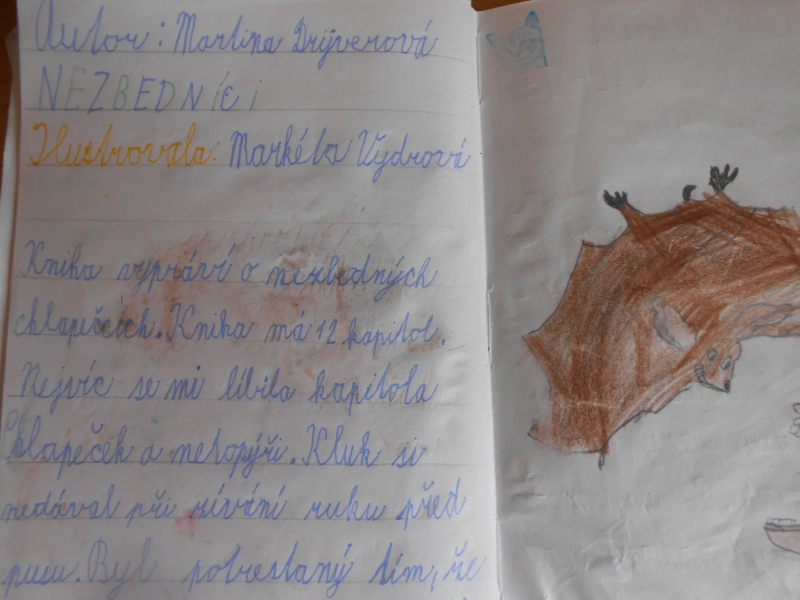 Autor: Martina Drijverová
NEZBEDNíci
Ilustrovala: Markéta Vydrová
Kniha vypráví o nezbedných
chlapečcích. Kniha má 12 kapitol.
Nejvíc se mi líbila kapitola
Chlapeček a netopýři. Kluk si
nedával při zívání ruku před
pusu. Byl potrestaný tím, že